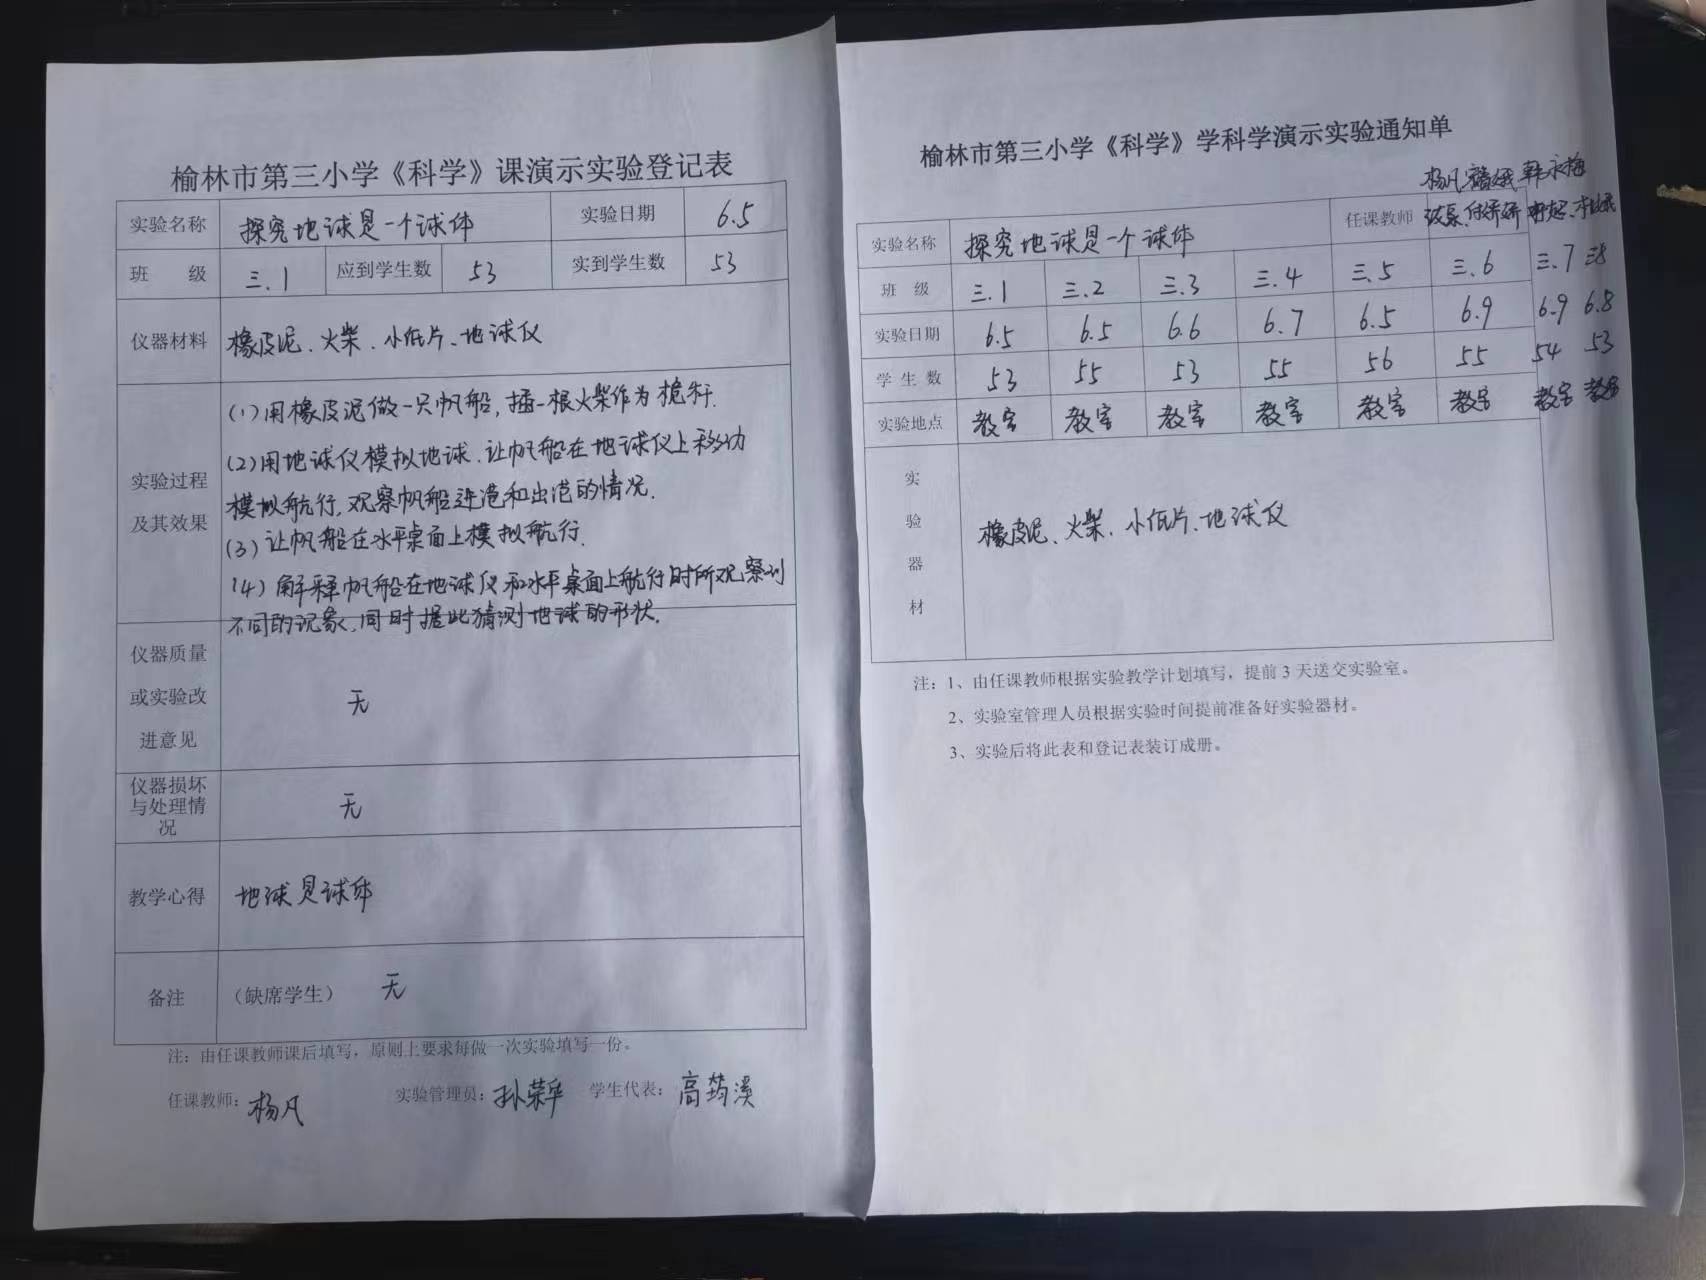 榆林市第三小学《科学》课演示实验登记表
实验名称 探究地球是一个球体 实验日期 6.5
班 级 三.1 应到学生数 53 实到学生数 53
仪器材料 橡皮泥、火柴、小纸片、地球仪
实验过程及其效果
(1)用橡皮泥做一只帆船,插一根火柴作为桅杆.
(2)用地球仪模拟地球.让帆船在地球仪上移动
模拟航行,观察帆船进港和出港的情况.
(3)让帆船在水平桌面上模拟航行.
(4)解释帆船在地球仪和水平桌面上航行时所观察到
不同的现象,同时据此猜测地球的形状.
仪器质量
或实验改
进意见
无
仪器损坏
与处理情
况
无
教学心得 地球是球体
备注 (缺席学生) 无
注:由任课教师课后填写,原则上要求每做一次实验填写一份。
任课教师:杨凡 实验管理员:孙荣华 学生代表:高筠溪
榆林市第三小学《科学》学科学演示实验通知单
杨凡 韩永梅
实验名称 探究地球是一个球体 任课教师 付娇娇
班 级 三.1 三.2 三.3 三.4 三.5 三.6 三.7 三.8
实验日期 6.5 6.5 6.6 6.7 6.5 6.9 6.9 6.8
学 生 数 53 55 53 55 56 55 54 53
实验地点 教室 教室 教室 教室 教室 教室 教室 教室
实
验
器
材
橡皮泥、火柴、小纸片、地球仪
注:1、由任课教师根据实验教学计划填写,提前 3 天送交实验室。
2、实验室管理人员根据实验时间提前准备好实验器材。
3、实验后将此表和登记表装订成册。